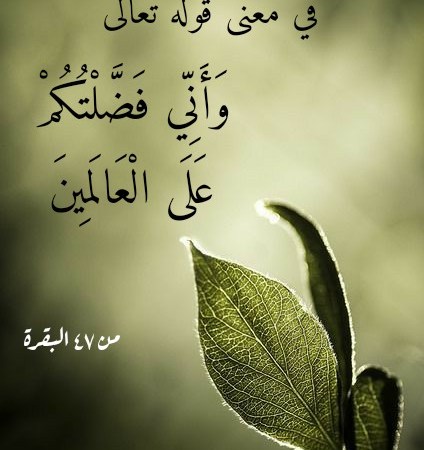 في معنى قوله تعالى
وَأَنِّي فَضَّلْتُكُمْ
عَلَى الْعَالَمِينَ
من ٤٧ البقرة